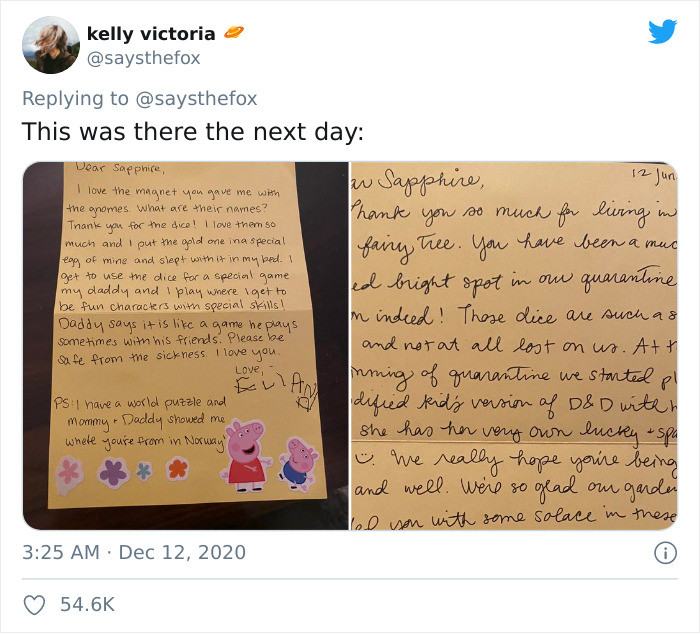 kelly victoria
@saysthefox
Replying to @saysthefox
This was there the next day:
Dear Sapphire,
I love the magnet you gave me with
the gnomes. What are their names?
Thank you for the dice! I love them so
much and I put the gold one in a special
egg of mine and slept with it in my bed. I
get to use the dice for a special game
my daddy and I play where I get to
be fun characters with special skills!
Daddy says it is like a game he plays
sometimes with his friends. Please be
safe from the sickness. I love you.
Love,
PS: I have a world puzzle and
mommy + Daddy showed me
where you're from in Norway
12 Jun
Sapphire,
Thank you so much for living in
fairy Tree. You have been a muc
ed bright spot in our quarantine
indeed! Those dice are such a s
and not at all lost on us. At t
of quarantine we started pl
dified kid's version of D&D with h
she has her very own lucky + spa
We really hope you're being
and well. We're so glad our garde
you with some solace in these
3:25 AM · Dec 12, 2020
54.6K